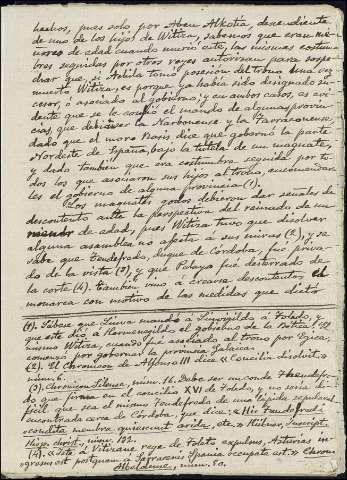 hechos, pues solo por Aben Alkotia, descendiente
de uno de los hijos de Witiza, sabemos que eran me-
nores de edad cuando murió este, las mismas costum-
bres seguidas por otros reyes autorizan para sospe-
char que, si Achila tomó posesion del trono una vez
muerto Witiza, es porque ya habia sido designado su-
cesor, ó asociado al gobierno, y en ambos casos, es evi-
dente que se le confió el mando de alguna provin-
cia, que debió ser la Narbonense, y la Tarraconense,
dado que el moro Rasis dice que gobernó la parte
Nordeste de España, bajo la tutela de un magnate,
y dado tambien que era costumbre seguida por to-
dos los que asociaron sus hijos al trono, encomendar-
les el gobierno de alguna provincia (1).
Los magnates godos debieron dar señales de
descontento ante la perspectiva del reinado de un
menor de edad, pues Witiza tuvo que disolver
alguna asamblea no afecta á sus miras (2), y se
sabe que Teudefredo, duque de Córdoba, fué priva-
do de la vista (3), y que Pelayo fué desterrado de
la corte (4). Tambien vino á crearse descontentos el
monarca con motivo de las medidas que dictó
(1). Sábese que Liuva mandó á Leovigildo á Toledo, y
que este dió á Hermenegildo el gobierno de la Bética. El
mismo Witiza, cuando fué asociado al trono por Egica,
comenzó por gobernar la provincia Galaica.
(2). El Chronicon de Alfonso III dice « Concilia disolvit »
núm. 6.
(3). Chronicon Silense, núm. 16. Debe ser un conde Theudefre-
do que firma en el concilio XVI de Toledo, y no seria di-
fícil que sea el mismo Teudefredo de una lápida sepulcral
encontrada cerca de Córdoba, que dice: « Hic Teudefredi
condita membra quiescunt arida, etc. » Hübner, Inscript.
Hisp. christ., núm. 132.
(4). « Iste á Vitizane rege de Toleto expulsus, Asturias in-
gressus est postquam á Sarracenis Spania occupata est. » Chron.
Albeldense, núm. 50.